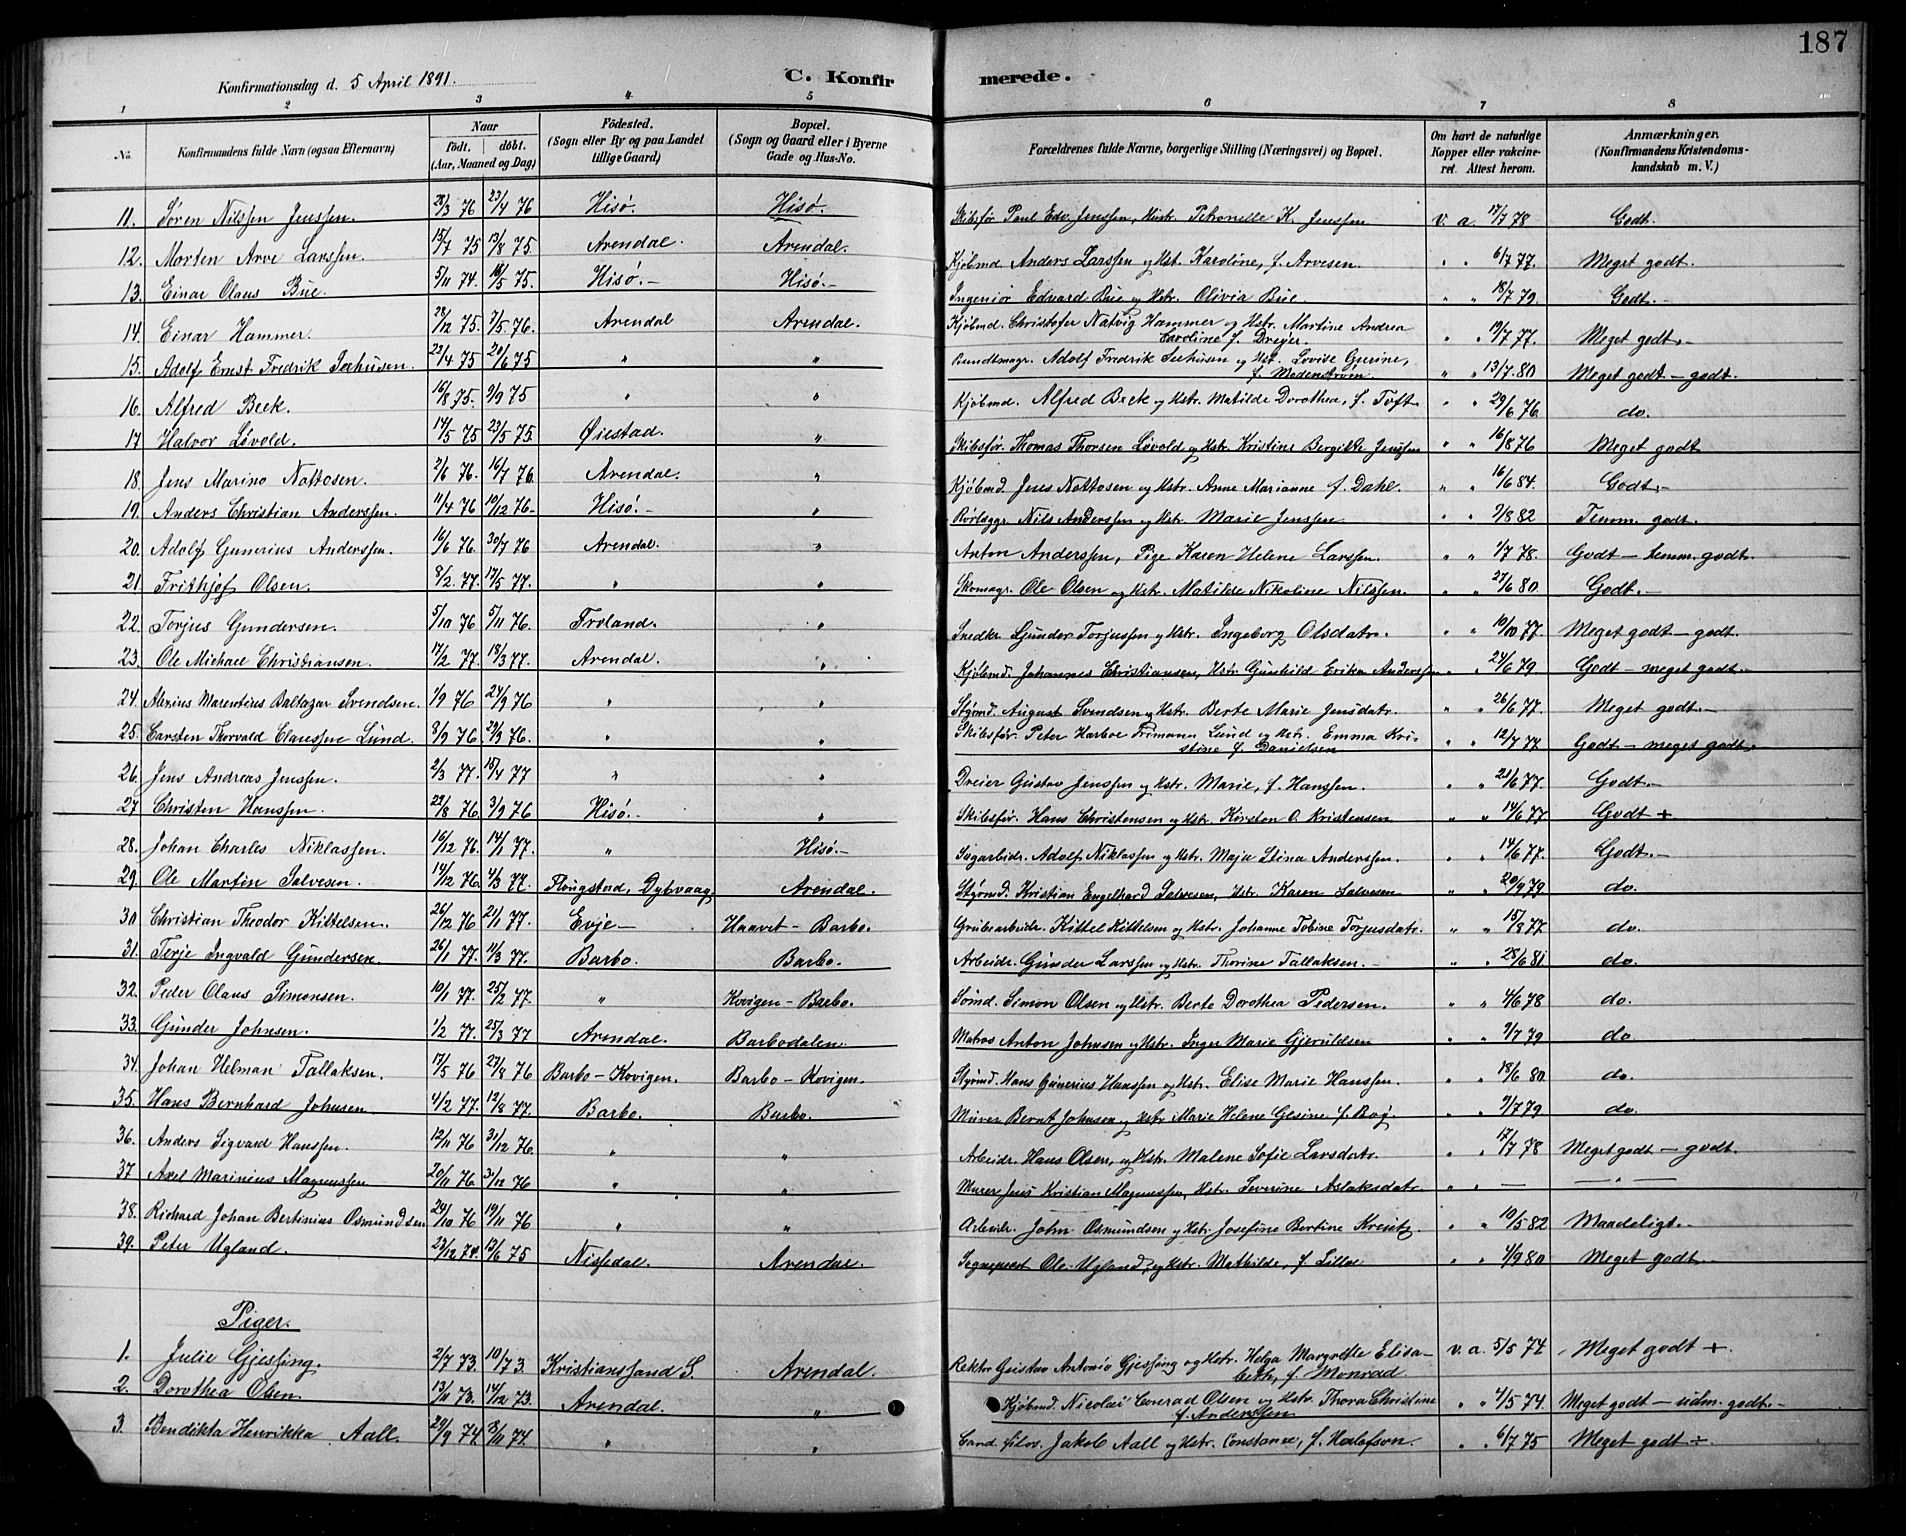 187
Konfirmationsdag d. 5 April 1891.
C. Konfirmerede.
1 2 3 4 5 6 7 8
No.
Konfirmandens fulde Navn (ogsaa Efternavn)
Naar
født. døbt.
(Aar, Maaned og Dag)
Fødested.
(Sogn eller By og paa Landet
tillige Gaard)
Bopæl.
(Sogn og Gaard eller i Byerne
Gade og Hus-No.
Forældrenes fulde Navne, borgerlige Stilling (Næringsvei) og Bopæl.
Om havt de naturlige
Kopper eller vakcine-
ret. Attest herom.
Anmærkninger.
(Konfirmandens Kristendoms-
kundskab m. V.)
11. Søren Nilssen Jenssen. 28/3 76 23/4 76 Hisø. Hisø. Skibsfør Paul Edv. Jenssen, Hstr. Petronelle K. Jenssen v. a. 17/7 78 Godt.
12. Morten Arve Larssen. 15/7 75 13/8 75 Arendal. Arendal. Kjøbmd. Anders Larssen og Hst. Karoline, f. Arvesen. " " 6/7 77. Meget godt.
13. Einar Olaus Bue. 5/11 74. 16/5 75. Hisø.- Hisø.- Ingeniør Edvard Bue og Hstr. Olivia Bue. " " 18/7 79. Godt.-
14. Einar Hammer. 28/12 75. 7/5 76. Arendal Arendal. Kjøbmd. Christofer Natvig Hammer og Hstr. Martine Andrea
Caroline f. Dreyer. " " 19/7 77. Meget godt.-
15. Adolf Ernst Fredrik Seehusen. 23/4 75 20/6 75 " " Bundtmagr. Adolf Fredrik Seehusen og Hst. Lovise Gurine,
f. Modenstrøm. " " 13/7 80 Meget godt - godt.
16. Alfred Beck. 16/8 75. 9/9 75 " " Kjøbmd. Alfred Beck og Hstr. Matilde Dorothea, f. Toft " " 29/6 76. do.
17 Halvor Løvold. 14/5 75 23/5 75. Øiestad. " Skibsfør. Thomas Thorsen Løvold og Hstr. Kristine Bergitte Jenssen " " 16/8 76 Meget godt
18. Jens Marino Nottosen. 2/6 76. 16/7 76. Arendal. " Kjøbmd. Jens Nottosen og Hstr. Anne Marianne f. Dahl. " " 16/6 84. Godt.-
19. Anders Christian Anderssen. 11/4 76 10/12 76- Hisø.- " Rørlæggr. Nils Anderssen og Hstr. Marie Jenssen " " 9/8 82 Temm. godt.
20. Adolf Gunerius Anderssen. 16/6 76. 30/7 76 Arendal. " Anton Anderssen, Pige Karen Helene Larssen. " " 1/7 78. Godt - temm. godt.
21 Frithjof Olsen. 8/2. 77. 17/5 77. " " Skomagr. Ole Olsen og Hstr. Matilde Nikoline Nilssen. " " 27/6 80 Godt.-
22. Torjus Gundersen. 5/10 76 5/11 76. Froland. " Snedkr Gunder Torjussen og Hstr. Ingeborg Olsdatr. " " 10/10 77. Meget godt - godt.
23. Ole Michael Christiansen. 17/2 77. 18/3 77. Arendal. " Kjøbmd. Johannes Christiansen, Hstr. Gunhild Erika Anderssen " " 24/6 79 Godt - meget godt.-
24. Alexius Marentius Baltazar Svendsen. 1/9 76 24/9 76 " " Styrmd. August Svendsen og Hstr. Berte Marie Jensdatr. " " 26/6 77. Meget godt.-
25. Carsten Thorvald Claussen Lund. 8/9 76 29/9 76. " " Skibsfør Peter Harboe Frimann Lund og Hstr. Emma Kri-
stine f. Danielsen " " 12/7 77 Godt - meget godt.
26. Jens Andreas Jenssen. 2/3 77. 15/4 77 " " Dreier Gustav Jenssen og Hstr. Marie, f. Hanssen. " " 21/6 77. Godt.-
27. Christen Hanssen. 22/8 76. 3/9 76 Hisø.- " Skibsfør. Hans Christensen og Hstr. Kirsten O. Kristensen " " 14/6 77 Godt +
28. Johan Charles Niklassen. 16/12 76. 14/1 77. " Hisø.- Sagarbeidr. Adolf Niklassen og Hstr. Maja Stina Anderssen. " " 14/6 77. Godt.-
29. Ole Martin Salvesen. 14/12 76. 4/3 77. Flougstad, Dybvaag Arendal. Styrmd. Kristian Engelhard Salvesen, Hstr. Karen Salvesen " " 20/9 79. do.
30 Christian Theodor Kittelsen. 26/12 76 21/1 77. Evje- Haavet - Barbo. Grubearbeidr. Kittel Kittelsen og Hstr. Johanne Tobine Torjusdatr. " " 15/8 77. do.
31. Terje Ingvald Gundersen. 26/1 77. 11/3 77. Barbo. Barbo. Arbeidr. Gunder Larssen og Hstr. Thorine Tallaksen.- " " 28/6 81 do.
32. Peder Olaus Simonsen. 10/1 77. 25/2 77. " Kovigen - Barbo. Sømd. Simon Olsen og Hstr. Berte Dorothea Pedersen. " " 4/6 78 do.
33. Gunder Johnsen. 1/2 77. 25/3 77 Arendal. Barbodalen. Matros Anton Johnsen og Hstr. Inger Marie Gjeruldsen " " 9/7 79 do.
34. Johan Helman Tallaksen. 17/5 76 27/8 76 Barbo - Kovigen. Barbo - Kovigen. Styrmd. Hans Gunerius Hanssen og Hstr. Elise Marie Hanssen. " " 18/6 80. do.
35. Hans Bernhard Johnsen 4/2 77. 12/8 77. Barbo. Barbo. Murer Bernt Johnsen og Hstr. Marie Helene Gesine f. Bøj " " 9/7 79 do.
36. Anders Sigvard Hanssen. 12/11 76 31/12 76. " " Arbeidr. Hans Olsen, og Hstr. Malene Sofie Larsdatr. " " 17/7 78 Meget godt - godt.
37 Axel Marinius Magnussen 20/11 76. 31/12 76 " " Murer Jens Kristian Magnussen, Hstr. Severine Aslaksdatr. " " - - " -
38. Richard Johan Bertinius Osmundsen 20/10 76 19/11 76 " " Arbeidr. John Osmundsen og Hstr. Josefine Bertine Kreutz. " " 10/5 82 Maadeligt.-
39. Peter Ugland. 23/12 74. 13/6 75 Nissedal. Arendal. Sogneprest Ole Ugland, og Hstr. Mathilde, f. Lilloe " " 4/9 80 Meget godt.-
Piger.
1. Julie Gjessing. 2/7 73. 10/7 3. Kristianssand S. Arendal. Rektor Gustav Antonio Gjessing og Hstr. Helga Margrethe Elisa-
beth, f. Monrad v. a. 5/5 74 Meget godt +
2. Dorothea Olsen 13/11 73. 14/12 73. Arendal. " Kjøbmd. Nicolai Conrad Olsen og Hstr. Thora Christine
f. Anderssen " " 4/5 74. Meget godt - udm. godt.-
3. Bendikta Henrikka Aall. 29/9 74. 8/11 74. " " Cand. filos. Jakob Aall og Hstr. Constance, f. Herlofson. " " 6/7 75 Meget godt +.